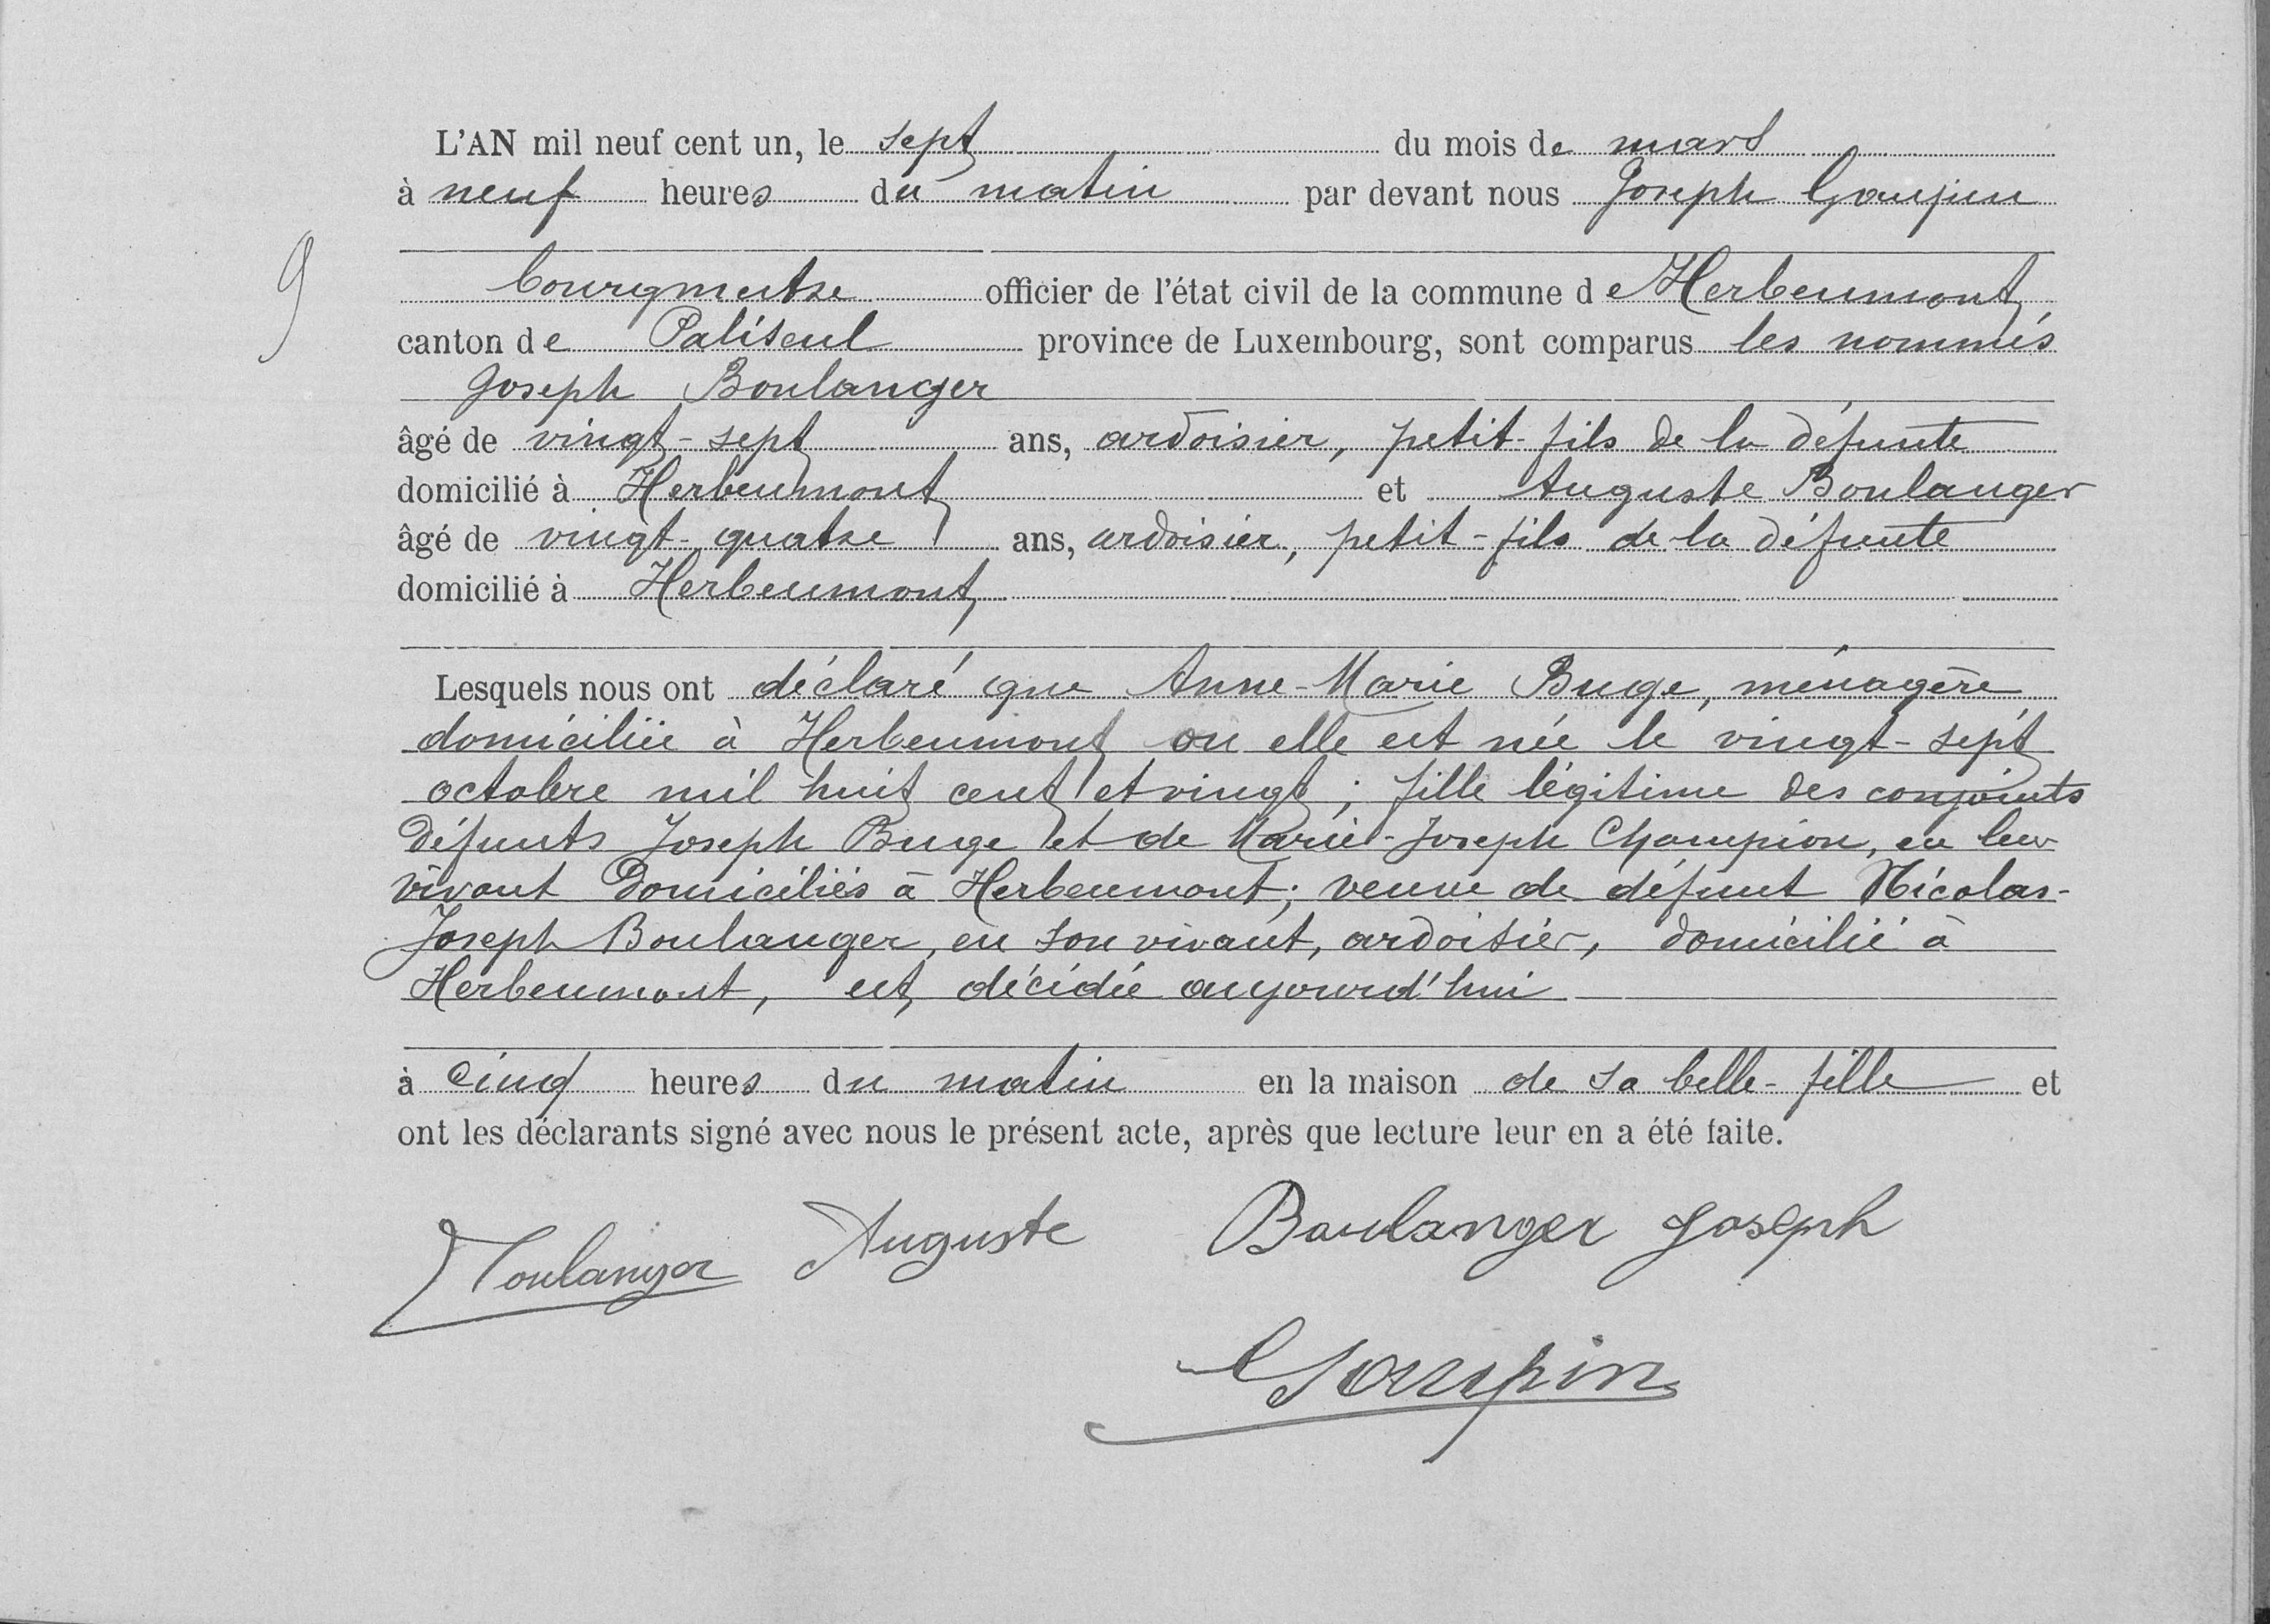 L'AN mil neuf cent un, le sept du mois de mars
à neuf heures du matin par devant nous Joseph
9
bourgmestre officier de l'état civil de la commune de Herbeumont
canton de Paliseul province de Luxembourg, sont comparus les nommés
Joseph Boulanger
âgé de vingt-sept ans, ardoisier, petit-fils de la défunte
domicilié à Herbeumont et Auguste Boulanger
âgé de vingt-quatre ans, ardoisier, petit-fils de la défunte
domicilié à Herbeumont
Lesquels nous ont déclaré que Anne-Marie Buge, ménagère
domiciliée à Herbeumont où elle est née le vingt-sept
octobre mil huit cent et vingt ; fille légitime des conjoints
défunts Joseph Buge et de Marie-Joseph Champion, en leur
vivant domiciliés à Herbeumont ; veuve de défunt Nicolas-
Joseph Boulanger, en son vivant, ardoisier, domicilié à
Herbeumont, est décédée aujourd'hui
à cinq heures du matin en la maison de sa belle-fille et
ont les déclarants signé avec nous le présent acte, après que lecture leur en a été faite.
Boulanger Auguste Boulanger Joseph